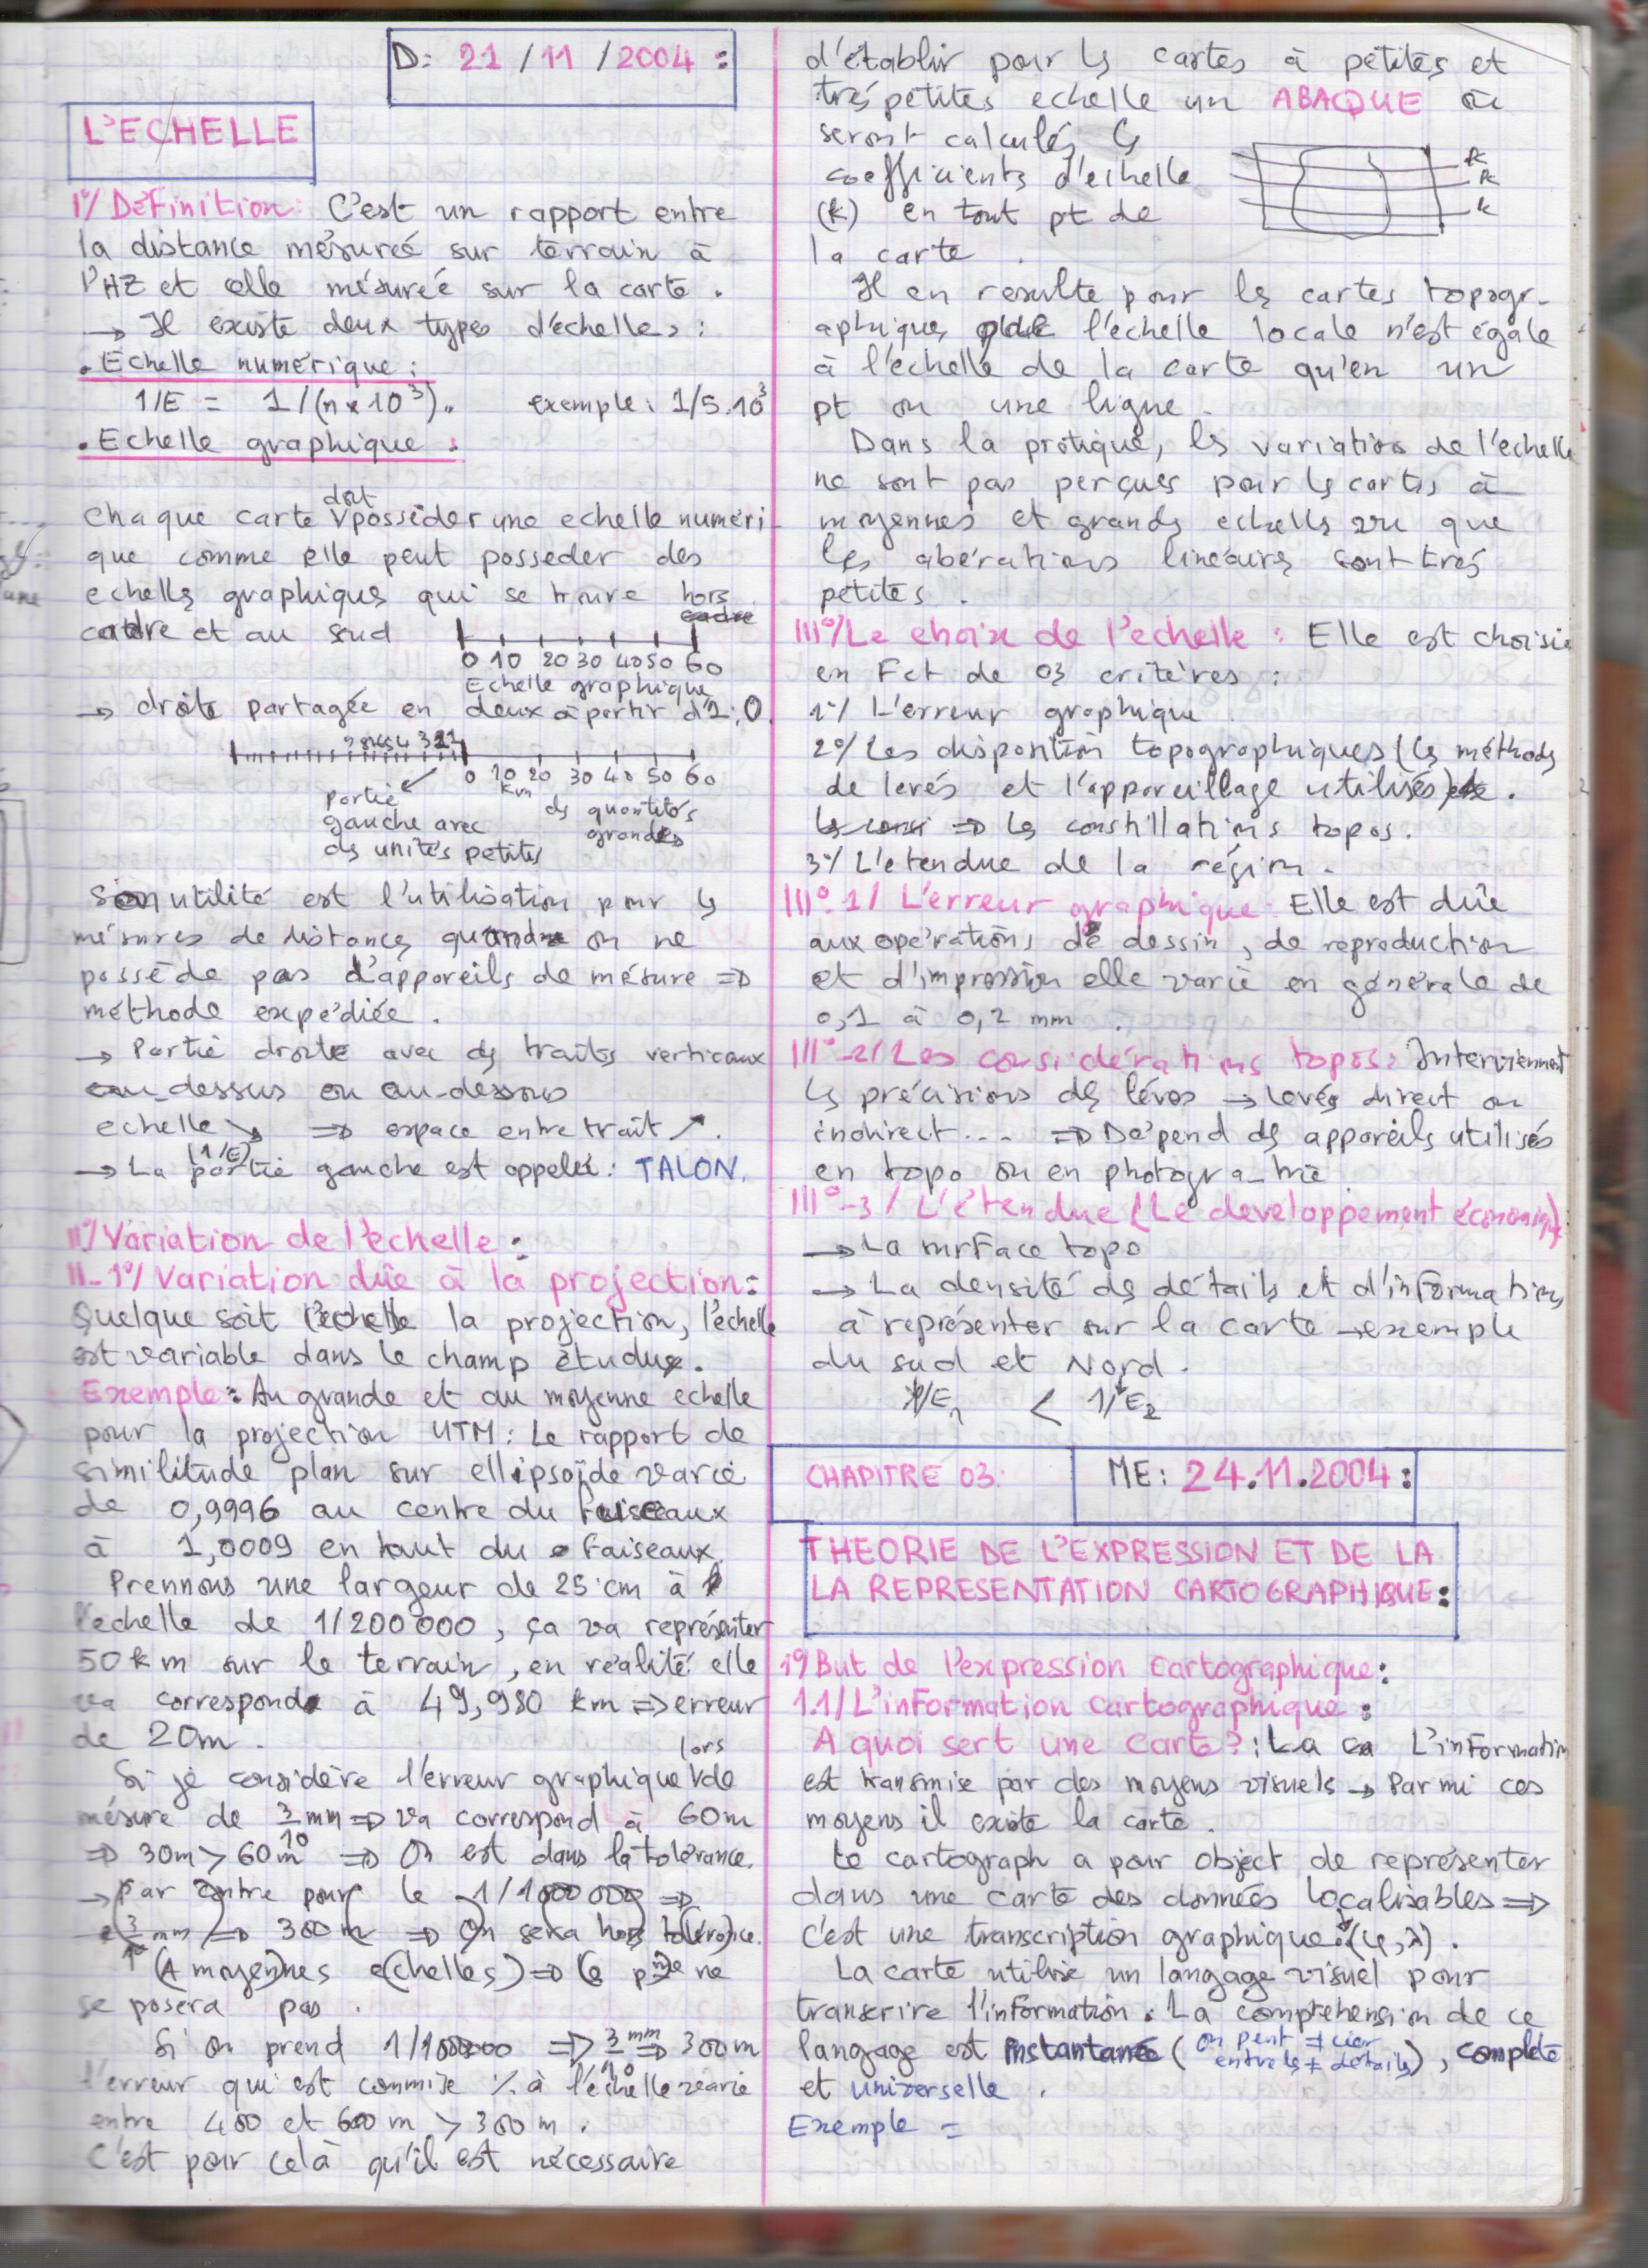 D: 21 / 11 / 2004 :
L'ECHELLE
I°/ Définition: C'est un rapport entre
la distance mésureé sur terrain à
l'HZ et celle mésureé sur la carte.
→ Il existe deux types d'echelles :
. Echelle numérique :
1/E = 1/(n×10³). exemple: 1/5.10³
. Echelle graphique :
chaque carte doit possèder une echelle numéri-
que comme elle peut posseder des
echelles graphiques qui se trouve hors
cadre et au sud
0 10 20 30 40 50 60
Echelle graphique
→ droite partagée en deux à partir d'1 : 0
9 8 7 6 5 4 3 2 1
0 10 20 30 40 50 60
Km
partie gauche avec des unités petites
des quantités grandes
Son utilité est l'utilisation pour les
mésures de distances quand on ne
possède pas d'appareils de mésure ⇒
méthode expédiée.
→ Partie droite avec des traits verticaux
au-dessus ou au-dessous
echelle ↘ ⇒ espace entre trait ↗.
(1/E)
→ La partie gauche est appelée : TALON.
II°/ Variation de l'echelle :
II-1°/ Variation dûe à la projection :
Quelque soit la projection, l'échelle
est variable dans le champ étudué.
Exemple : Au grande et au moyenne echelle
pour la projection UTM : Le rapport de
similitude plan sur ellipsoïde varie
de 0,9996 au centre du fuiseaux
à 1,0009 en haut du faiseaux.
Prennons une largeur de 25 cm à
l'echelle de 1/200 000, ça va représenter
50 km sur le terrain, en réalité elle
va correspond à 49,980 km ⇒ erreur
de 20m.
Si je considère l'erreur graphique lors de
mésure de 3/10 mm ⇒ va correspond à 60m
⇒ 30m > 60m ⇒ On est dans la tolérance.
→ Par contre pour le 1/1000 000 ⇒
3/10 mm ⇒ 300 m ⇒ On sera hors tolérance.
(A moyennes echelles) ⇒ le pme ne
se posera pas.
Si on prend 1/1000000 ⇒ 3/10 mm ⇒ 300m
l'erreur qui est commise % à l'échelle varie
entre 400 et 600 m > 300 m.
C'est pour celà qu'il est nécessaire
d'établir pour les cartes à petites et
très petites echelle un ABAQUE où
seront calculés les
coefficients d'echelle
(k) en tout pt de
la carte.
k
k
k
Il en resulte pour les cartes topogr-
aphiques que l'échelle locale n'est égale
à l'échelle de la carte qu'en un
pt ou une ligne.
Dans la pratique, les variations de l'echelle
ne sont pas perçues pour les cartes à
moyennes et grands echelles vu que
les abérations linéaires sont très
petites.
III°/ Le choix de l'echelle : Elle est choisie
en Fct de 03 critères :
1°/ L'erreur graphique
2°/ Les disposition topographiques (les méthods
de levés et l'appareillage utilisés).
⇒ les constillations topos.
3°/ L'etendue de la région.
III°-1/ L'erreur graphique : Elle est dûe
aux opérations de dessin, de reproduction
et d'impression elle varie en générale de
0,1 à 0,2 mm.
III°-2/ Les considérations topos : Interviennent
les précisions des léves → levés direct ou
indirect... ⇒ Dépend des appareils utilisés
en topo ou en photogra-trie.
III°-3/ L'étendue (Le developpement économique) :
→ La surface topo
→ La densité des détails et d'informations
à représenter sur la carte → exemple
du sud et Nord.
1/E1 < 1/E2
CHAPITRE 03: ME: 24.11.2004 :
THEORIE DE L'EXPRESSION ET DE LA
LA REPRESENTATION CARTOGRAPHIQUE :
1°/ But de l'expression cartographique :
1.1/ L'information cartographique :
A quoi sert une carte? : L'information
est transmise par des moyens visuels → Parmi ces
moyens il existe la carte.
Le cartograph a pour object de représenter
dans une carte des données localisables ⇒
c'est une transcription graphique (φ, λ).
La carte utilise un langage visuel pour
transcrire l'information. La compréhension de ce
langage est instantané ( on peut ≠cier entre les ≠ détails ), complète
et universelle.
Exemple =